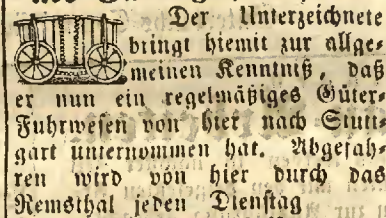 Der Unterzeichnete
bringt hiemit zur allge-
meinen Kenntniß, daß
er nun ein regelmäßiges Güter-
Fuhrwesen von hier nach Stutt-
gart unternommen hat. Abgefah-
ren wird von hier durch das
Remsthal jeden Dienstag